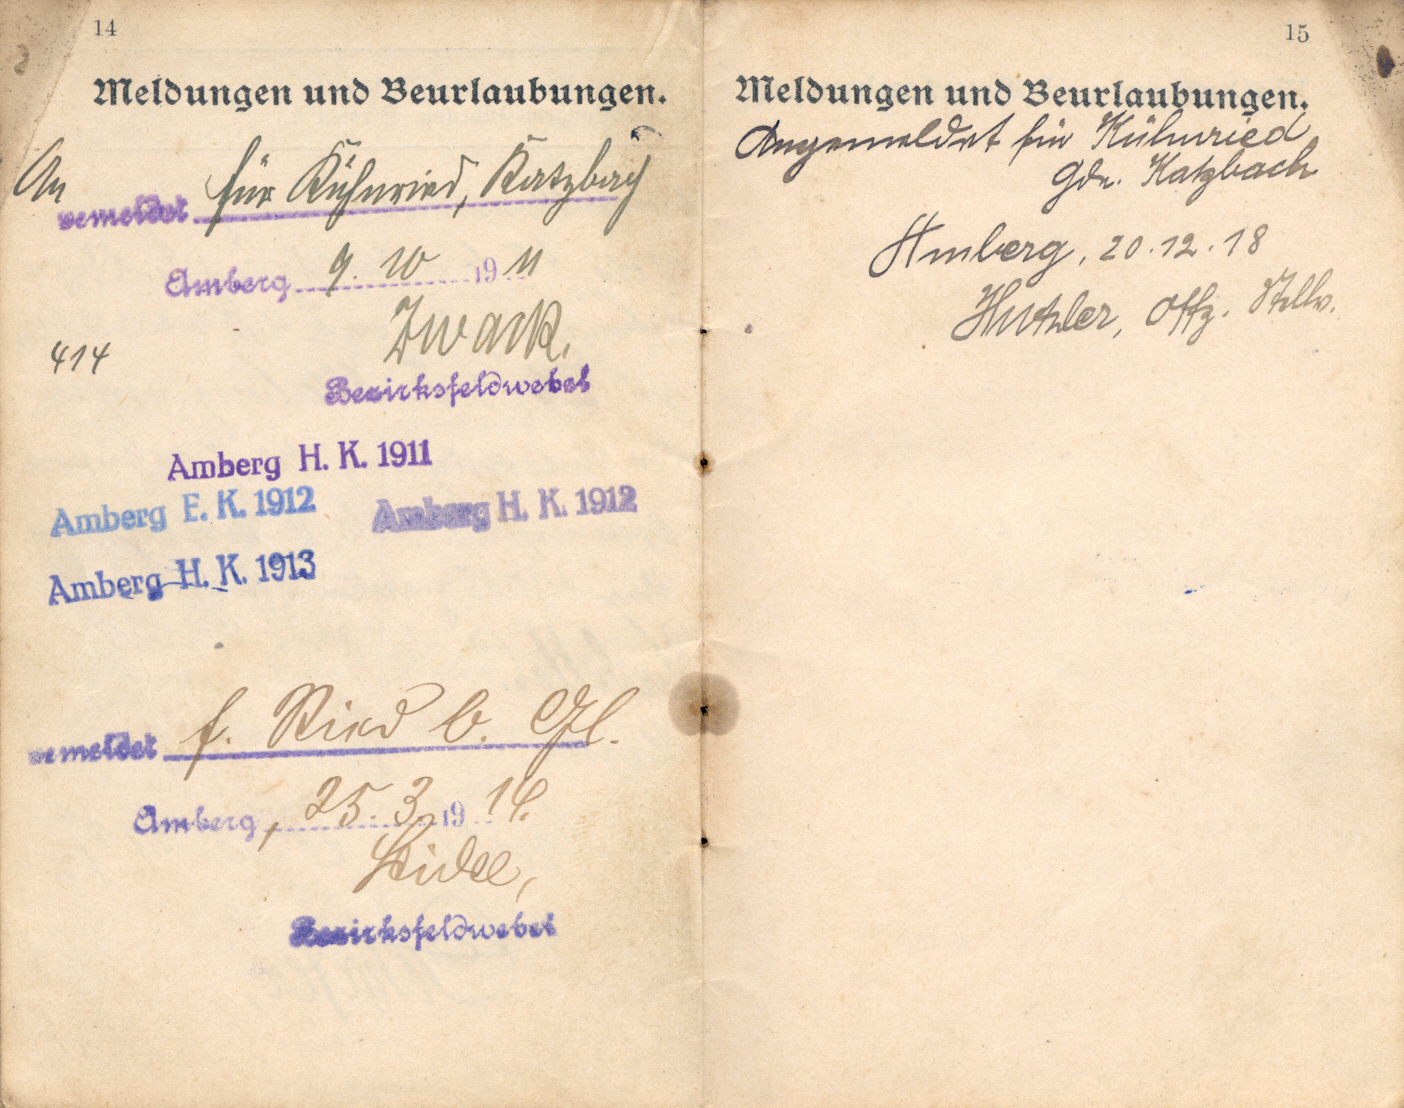 14
Meldungen und Beurlaubungen.
An
gemeldet für Kühnried, Katzbach
Amberg 9. 10 1911
Zwack.
414
Bezirksfeldwebel
Amberg H. K. 1911
Amberg E. K. 1912 Amberg H. K. 1912
Amberg H. K. 1913
gemeldet f. Ried b. Gl.
Amberg, 25. 3. 1914.
Bezirksfeldwebel
15
Meldungen und Beurlaubungen.
Angemeldet für Kühnried
Gde. Katzbach
Amberg, 20.12.18
Hutzler, Offz. Stellv.